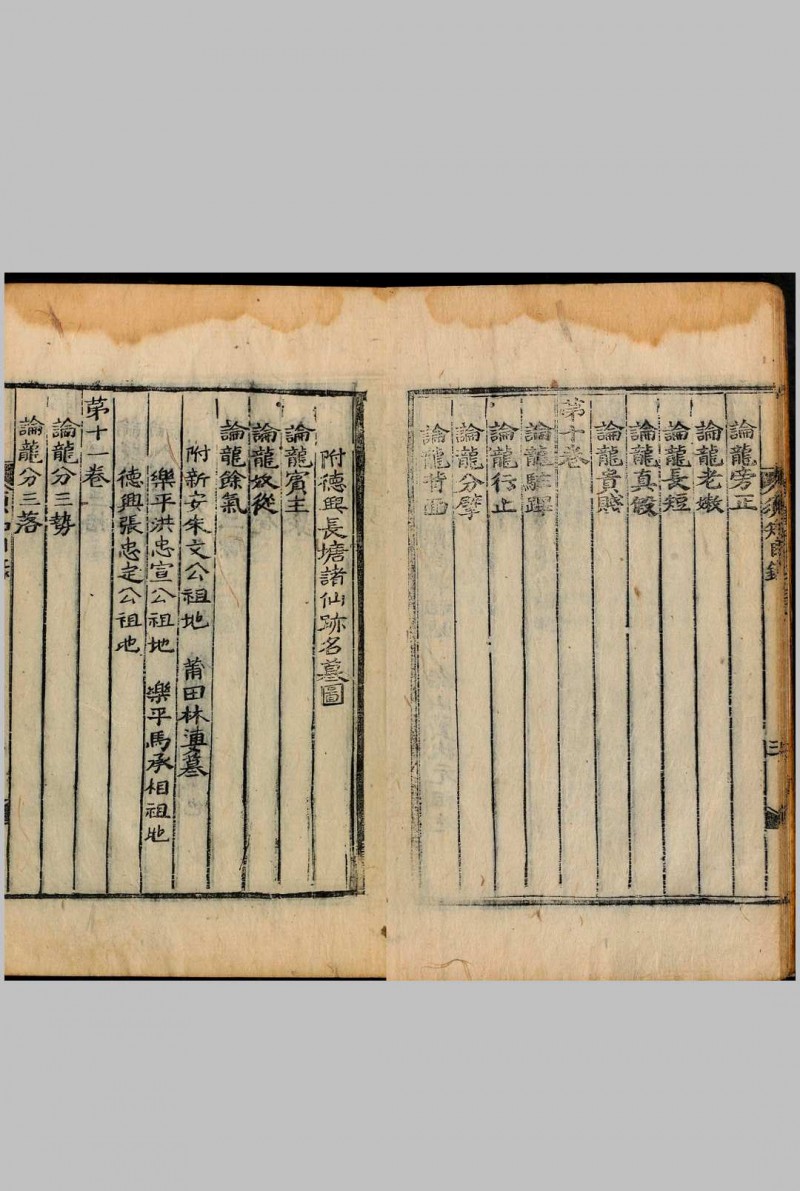 人須知目錄
三
論龍旁正
論龍老嫩
論龍長短
論龍真假
論龍貴賤
第十卷
論龍駐蹕
論龍行止
論龍分擘
論龍背面
附德興長塘諸仙跡名墓圖
論龍賓主
論龍奴從
論龍餘氣
附新安朱文公祖地 莆田林墓
樂平洪忠宣公祖地 樂平馬丞相祖地
德興張忠定公祖地
第十一卷
論龍分三勢
論龍分三落